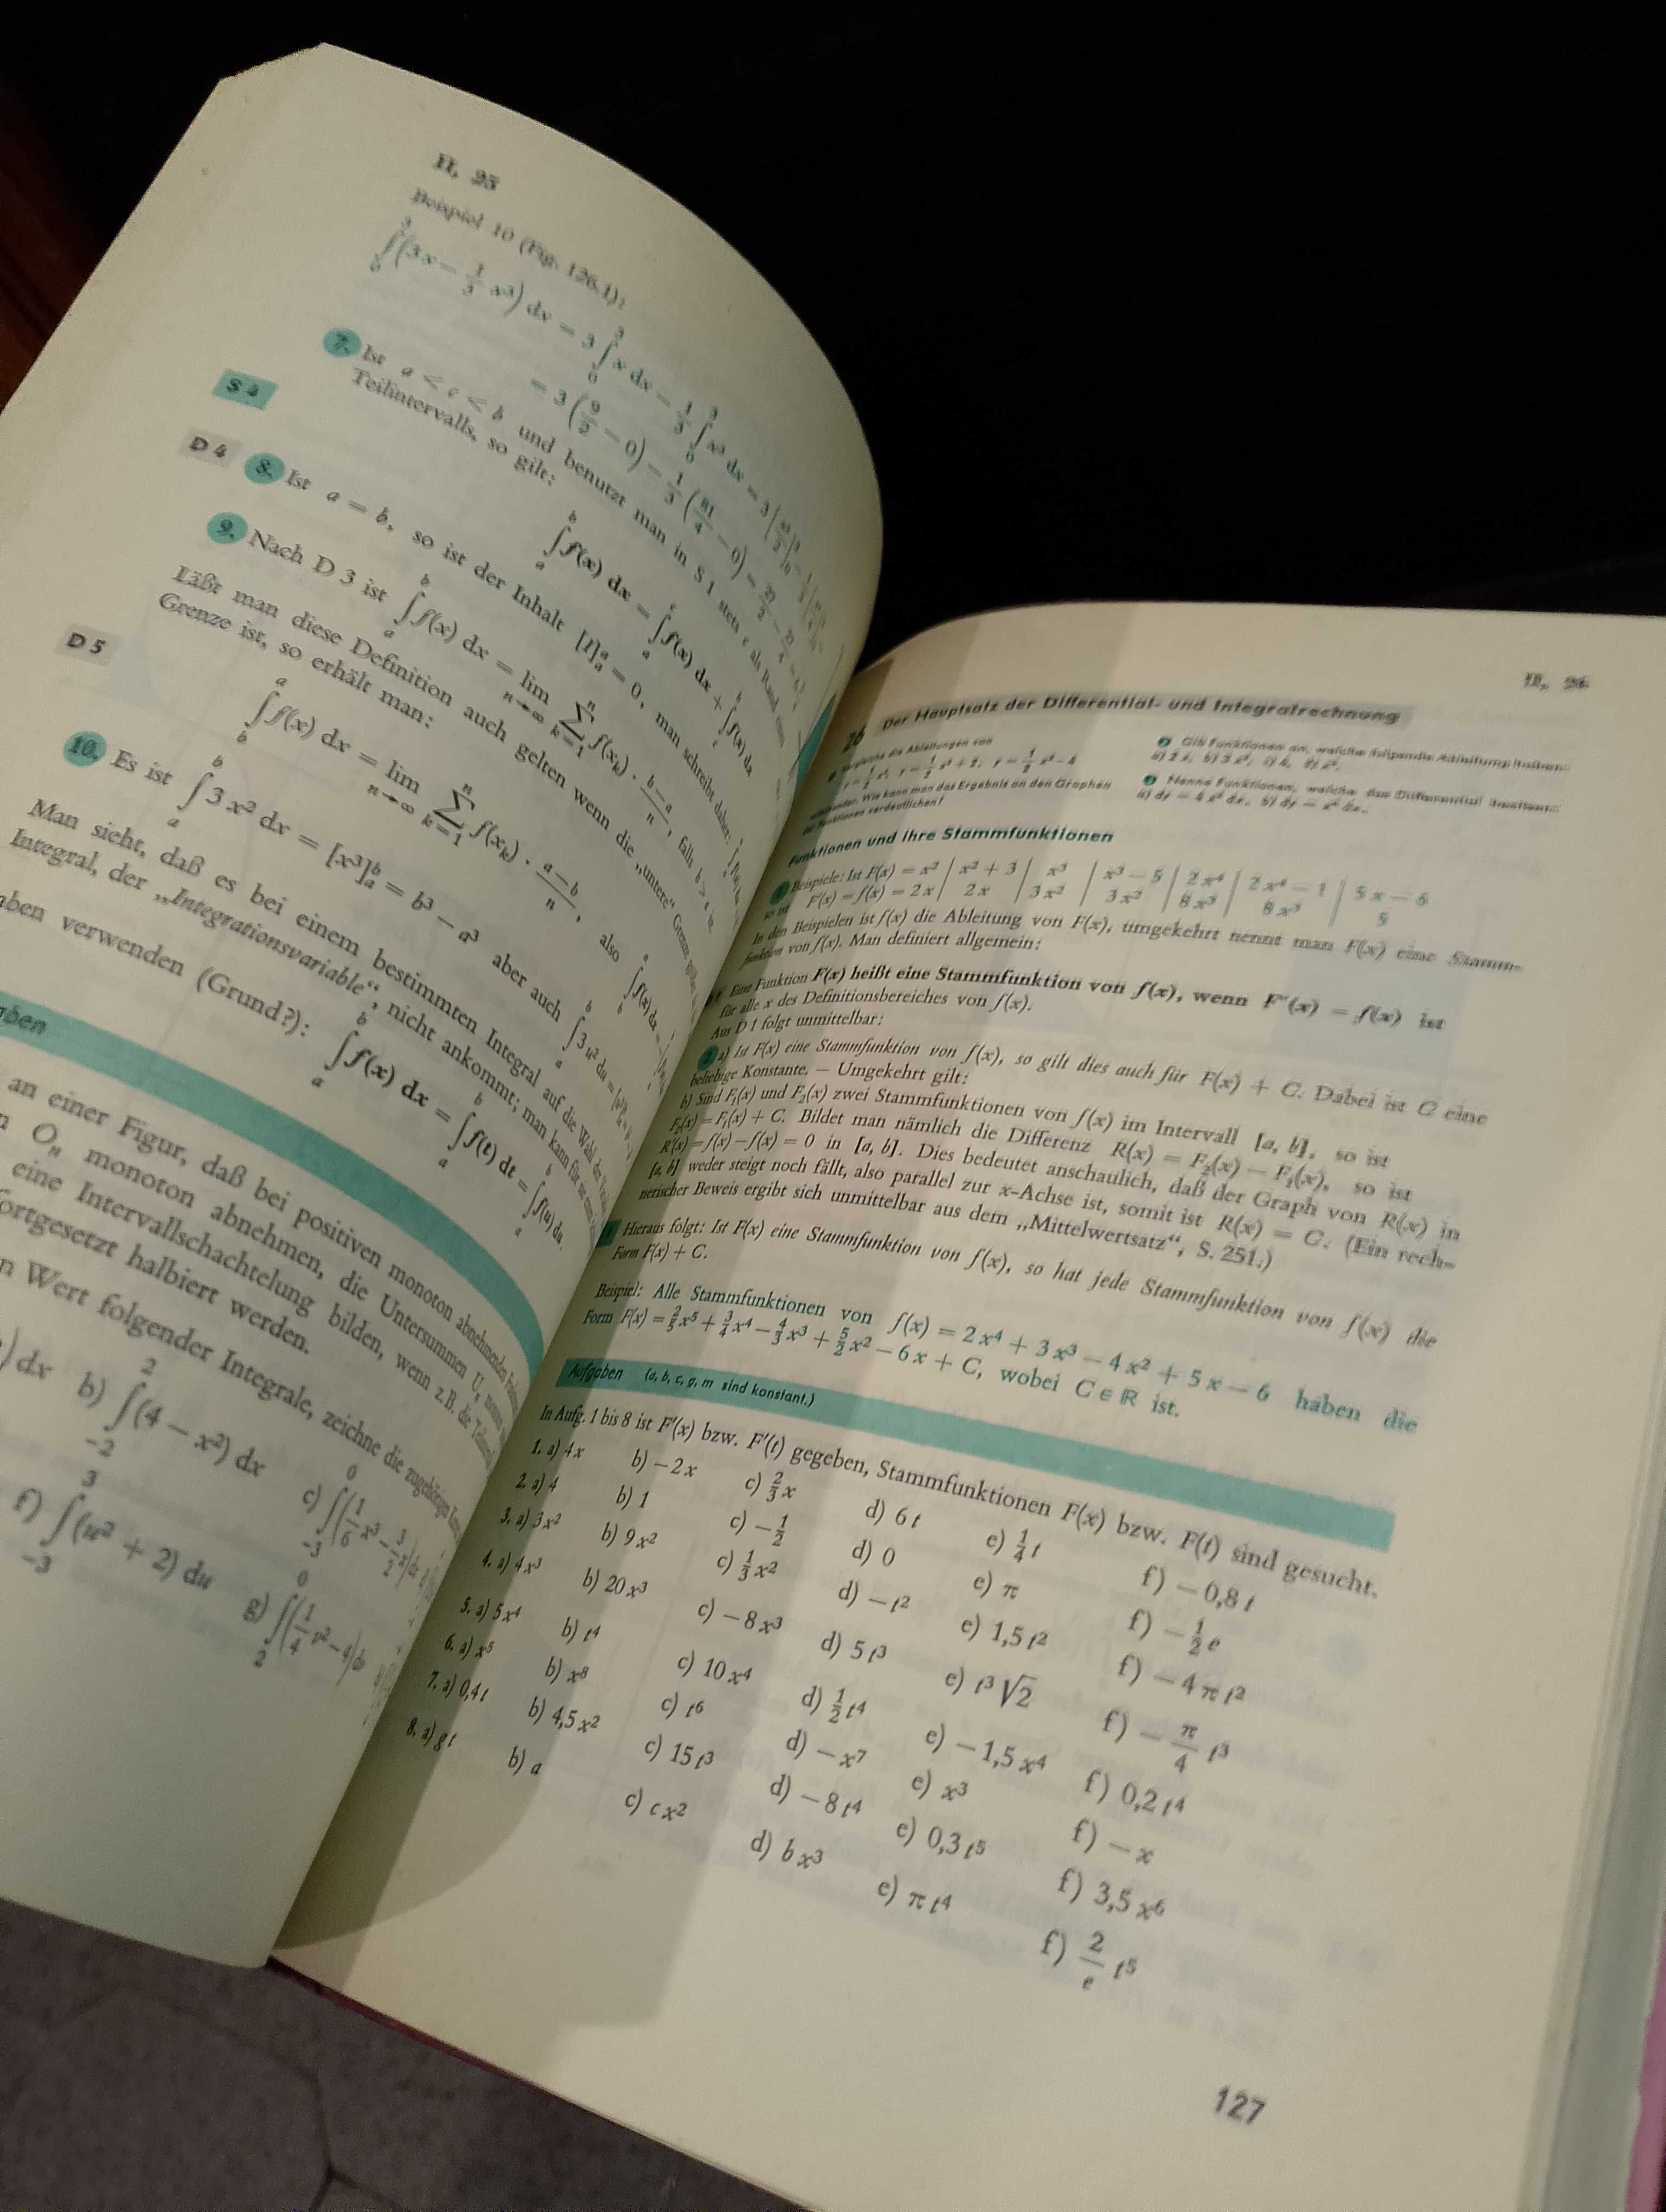 II, 25
Beispiel 10 (Fig. 126.1):
∫₀³ (3x − 1/3 x³) dx = 3 ∫₀³ x dx − 1/3 ∫₀³ x³ dx = 3
= 3 (9/2 − 0) − 1/3 (81/4 − 0) = 27/2 − 27/4
S 4
7. Ist a < c < b und benutzt man in S 1 stets c als Rand eines
Teilintervalls, so gilt:
∫ₐᵇ f(x) dx = ∫ₐᶜ f(x) dx + ∫ᶜᵇ f(x) dx
D 4
8. Ist a = b, so ist der Inhalt [I]ₐᵃ = 0, man schreibt daher:
9. Nach D 3 ist ∫ₐᵇ f(x) dx = lim n→∞ Σ k=1 n f(xₖ) · (b − a)/n, falls b > a
Läßt man diese Definition auch gelten wenn die „untere“ Grenze
Grenze ist, so erhält man:
D 5
∫_b^a f(x) dx = lim n→∞ Σ k=1 n f(xₖ) · (a − b)/n, also ∫_b^a f(x) dx =
10. Es ist ∫ₐᵇ 3 x² dx = [x³]ₐᵇ = b³ − a³ aber auch ∫ₐᵇ 3 u² du =
Man sieht, daß es bei einem bestimmten Integral auf die Wahl der
Integral, der „Integrationsvariable“, nicht ankommt; man kann für sie
aben verwenden (Grund?): ∫ₐᵇ f(x) dx = ∫ₐᵇ f(t) dt = ∫ₐᵇ f(u) du.
aben
an einer Figur, daß bei positiven monoton abnehmenden
n Oₙ monoton abnehmen, die Untersummen Uₙ
eine Intervallschachtelung bilden, wenn z.B. die
ortgesetzt halbiert werden.
n Wert folgender Integrale, zeichne die zugehörigen
) dx b) ∫₋₂² (4 − x²) dx c) ∫₋₃⁰ (1/6 x³ − 3/2 x) dx
f) ∫₋₃³ (u² + 2) du g) ∫₂⁰ (1/4 v² − 4) dv
II, 26
26 Der Hauptsatz der Differential- und Integralrechnung
Vergleiche die Ableitungen von
y = 1/2 x², y = 1/2 x² + 2, y = 1/2 x² − 4
miteinander. Wie kann man das Ergebnis an den Graphen
der Funktionen verdeutlichen?
2 Gib Funktionen an, welche folgende Ableitung haben:
3 Nenne Funktionen, welche das Differential besitzen:
a) dy = 4 x³ dx,
Funktionen und ihre Stammfunktionen
1 Beispiele: Ist F(x) = x² | x² + 3 | x³ | x³ − 5 | 2 x⁴ | 2 x⁴ − 1 | 5 x − 6
so ist F'(x) = f(x) = 2 x | 2 x | 3 x² | 3 x² | 8 x³ | 8 x³ | 5
In den Beispielen ist f(x) die Ableitung von F(x), umgekehrt nennt man F(x) eine Stamm-
funktion von f(x). Man definiert allgemein:
Eine Funktion F(x) heißt eine Stammfunktion von f(x), wenn F'(x) = f(x) ist
für alle x des Definitionsbereiches von f(x).
Aus D 1 folgt unmittelbar:
2 a) Ist F(x) eine Stammfunktion von f(x), so gilt dies auch für F(x) + C. Dabei ist C eine
beliebige Konstante. – Umgekehrt gilt:
b) Sind F₁(x) und F₂(x) zwei Stammfunktionen von f(x) im Intervall [a, b], so ist
F₂(x) = F₁(x) + C. Bildet man nämlich die Differenz R(x) = F₂(x) − F₁(x), so ist
R'(x) = f(x) − f(x) = 0 in [a, b]. Dies bedeutet anschaulich, daß der Graph von R(x) in
[a, b] weder steigt noch fällt, also parallel zur x-Achse ist, somit ist R(x) = C. (Ein rech-
nerischer Beweis ergibt sich unmittelbar aus dem „Mittelwertsatz“, S. 251.)
Hieraus folgt: Ist F(x) eine Stammfunktion von f(x), so hat jede Stammfunktion von f(x) die
Form F(x) + C.
Beispiel: Alle Stammfunktionen von f(x) = 2 x⁴ + 3 x³ − 4 x² + 5 x − 6 haben die
Form F(x) = 2/5 x⁵ + 3/4 x⁴ − 4/3 x³ + 5/2 x² − 6 x + C, wobei C ∈ ℝ ist.
Aufgaben (a, b, c, g, m sind konstant.)
In Aufg. 1 bis 8 ist F'(x) bzw. F'(t) gegeben, Stammfunktionen F(x) bzw. F(t) sind gesucht.
1. a) 4x b) −2x c) 2/3 x d) 6 t e) 1/4 t f) −0,8 t
2. a) 4 b) 1 c) −1/2 d) 0 e) π f) −1/2 e
3. a) 3x² b) 9x² c) 1/3 x² d) −t² e) 1,5 t² f) −4 π t²
4. a) 4x³ b) 20x³ c) −8x³ d) 5 t³ e) t³ √2 f) −π/4 t³
5. a) 5x⁴ b) t⁴ c) 10 x⁴ d) 1/2 t⁴ e) −1,5 x⁴ f) 0,2 t⁴
6. a) x⁵ b) x⁸ c) t⁶ d) −x⁷ e) x³ f) −x
7. a) 0,4t b) 4,5x² c) 15 t³ d) −8 t⁴ e) 0,3 t⁵ f) 3,5 x⁶
8. a) g t b) a c) c x² d) b x³ e) π t⁴ f) 2/e t⁵
127